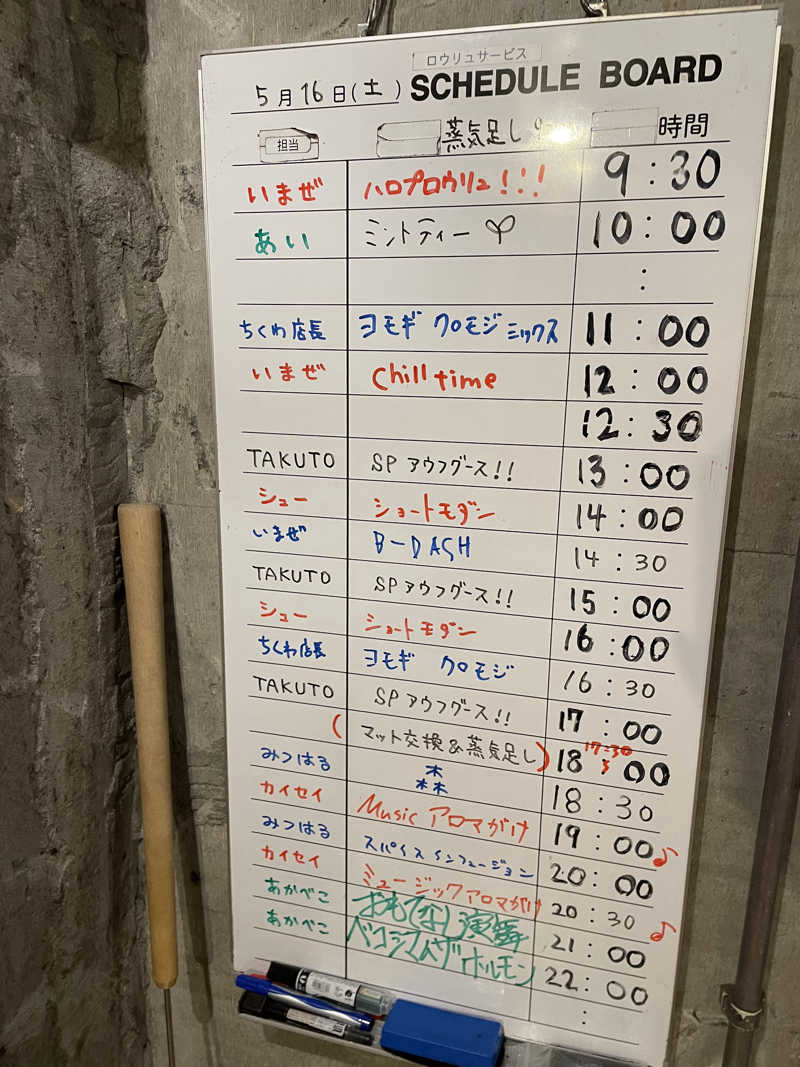 ロウリュサービス
5月16日(土) SCHEDULE BOARD
担当 蒸気足し 時間
いまぜ ハロプロウリュ!!! 9:30
あい ミントティー 10:00
:
ちくわ店長 ヨモギ クロモジ ミックス 11:00
いまぜ Chill time 12:00
12:30
TAKUTO SP アウフグース!! 13:00
シュー ショートモダン 14:00
いまぜ B-DASH 14:30
TAKUTO SP アウフグース!! 15:00
シュー ショートモダン 16:00
ちくわ店長 ヨモギ クロモジ 16:30
TAKUTO SP アウフグース!! 17:00
(マット交換&蒸気足し) 17:30
みつはる 木木木 18:00
カイセイ Music アロマがけ 18:30
みつはる スパイス インフュージョン 19:00♪
カイセイ ミュージックアロマがけ 20:00
あかべこ おもてなし演舞 20:30
あかべこ ホルモン 21:00♪
22:00
: